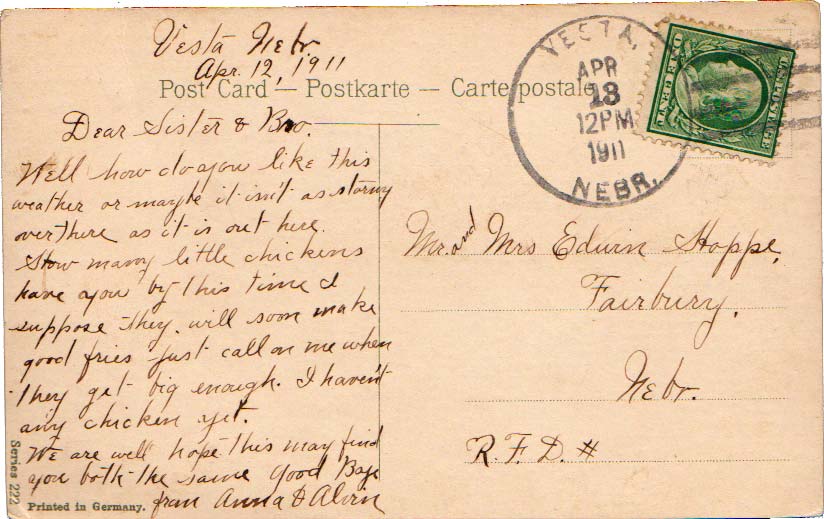 Vesta Nebr.
Apr. 12, 1911
Post Card — Postkarte — Carte postale
Dear Sister & Bro.
Well how do you like this
weather or maybe it isn't as stormy
over there as it is out here.
How many little chickens
have you by this time I
suppose they will soon make
good fries just call on me when
they get big enough. I haven't
any chicken yet.
We are well hope this may find
you both the same Good Bye
from Anna & Alvin
Series 222
Printed in Germany.
VESTA,
APR
13
12PM
1911
NEBR.
Mr. and Mrs Edwin Hoppe,
Fairbury,
Nebr.
R.F.D. #